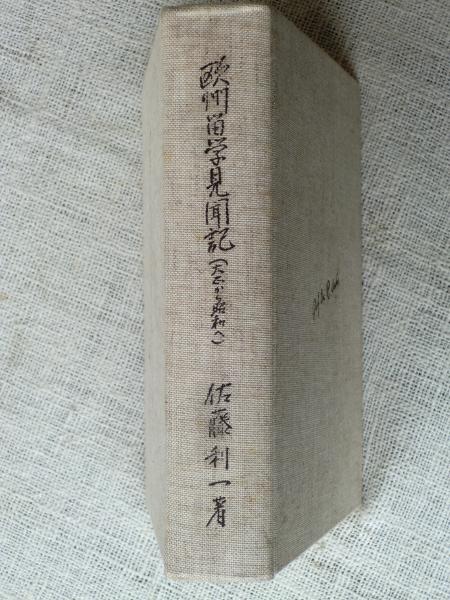 欧州留学見聞記(大正から昭和へ)
佐藤利一著